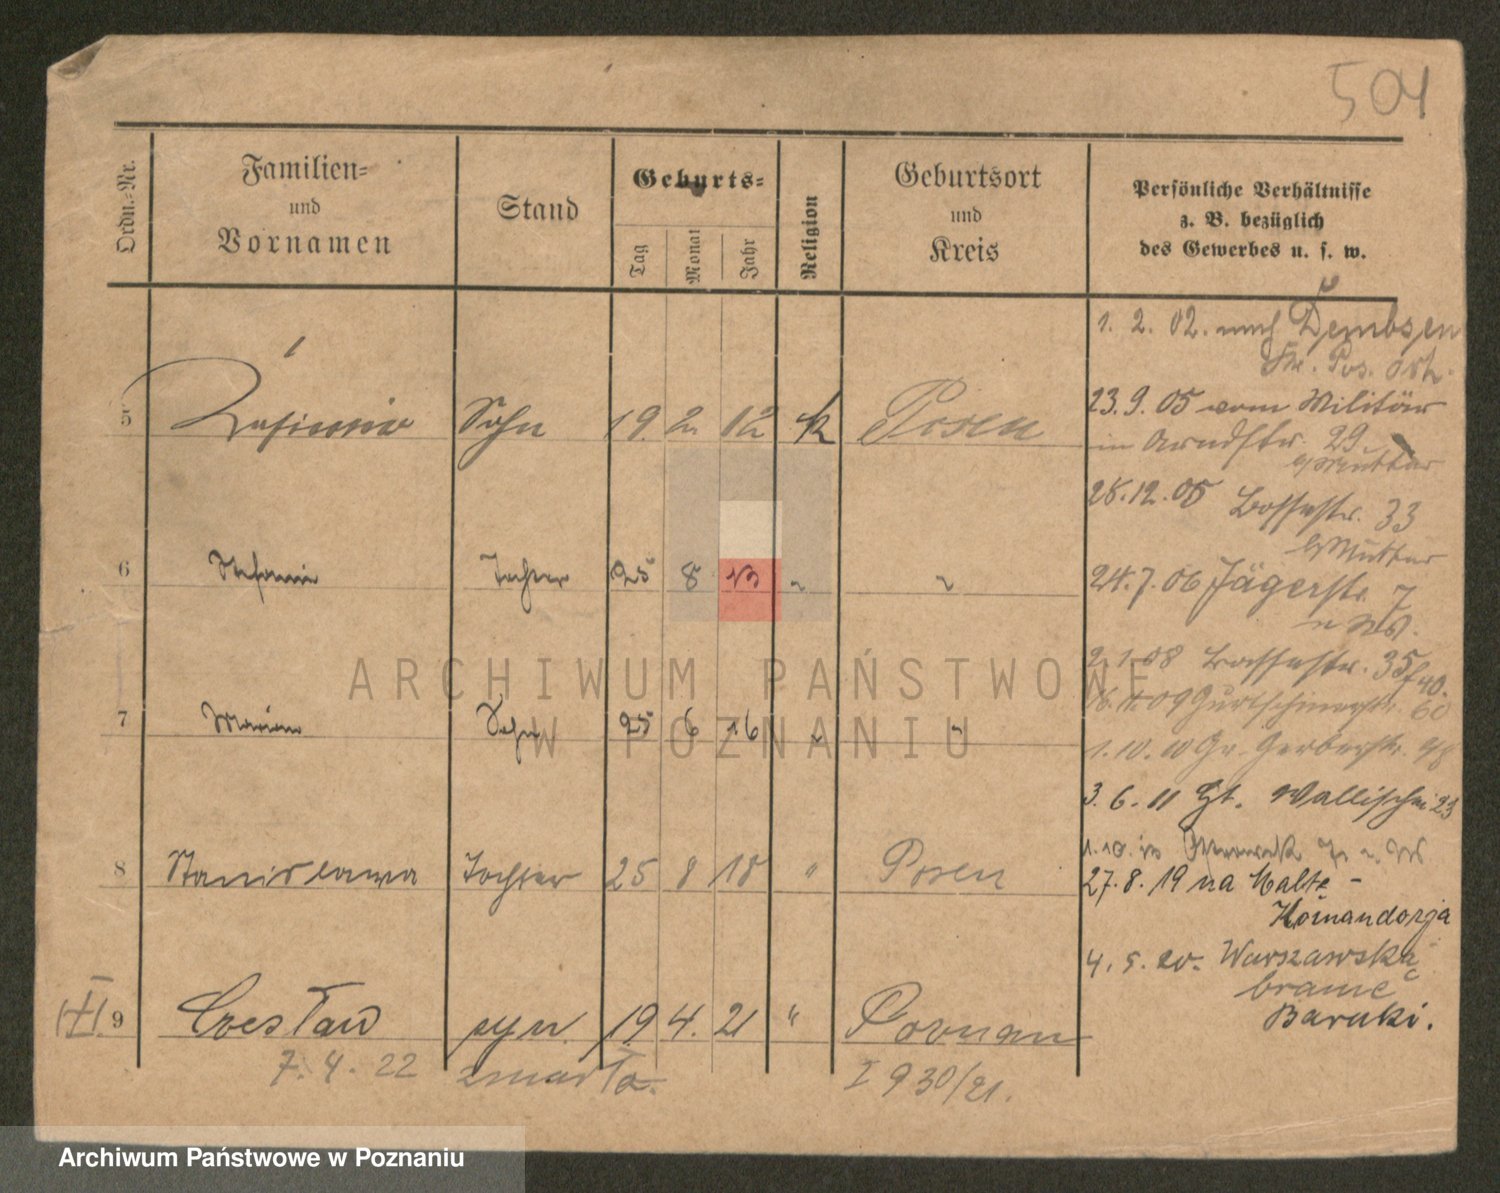 504
Ordn.-Nr.
Familien-
und
Vornamen
Stand
Geburts-
Tag
Monat
Jahr
Religion
Geburtsort
und
Kreis
Persönliche Verhältnisse
z. B. bezüglich
des Gewerbes u. s. w.
1. 2. 02. nach Dembsen
Kr. Pos. Ost.
5 Kasimir Sohn 19. 2. 12 k Posen
23. 9. 05 vom Militär
in Arndtstr. 29
b/ Mutter
28. 12. 05 33
b/ Mutter
6 Stefanie Tochter 25 8 13 " "
24. 7. 06 Jägerstr. 7
2. 1. 08 35
09 60
7 Marian Sohn 25 6 16 " "
1. 10. 10 Gr. Gerberstr. 48
3. 6. 11 Wallischei 23
8 Stanislawa Tochter 25 8 18 " Posen
27. 8. 19 na Malte-
Komandorja
4. 5. 20. Warszawska
bramę
Baraki.
9 Czesław syn 19. 4. 21 " Poznań
7. 4. 22 zmarła. I 930/21.
ARCHIWUM PAŃSTWOWE
W POZNANIU
Archiwum Państwowe w Poznaniu